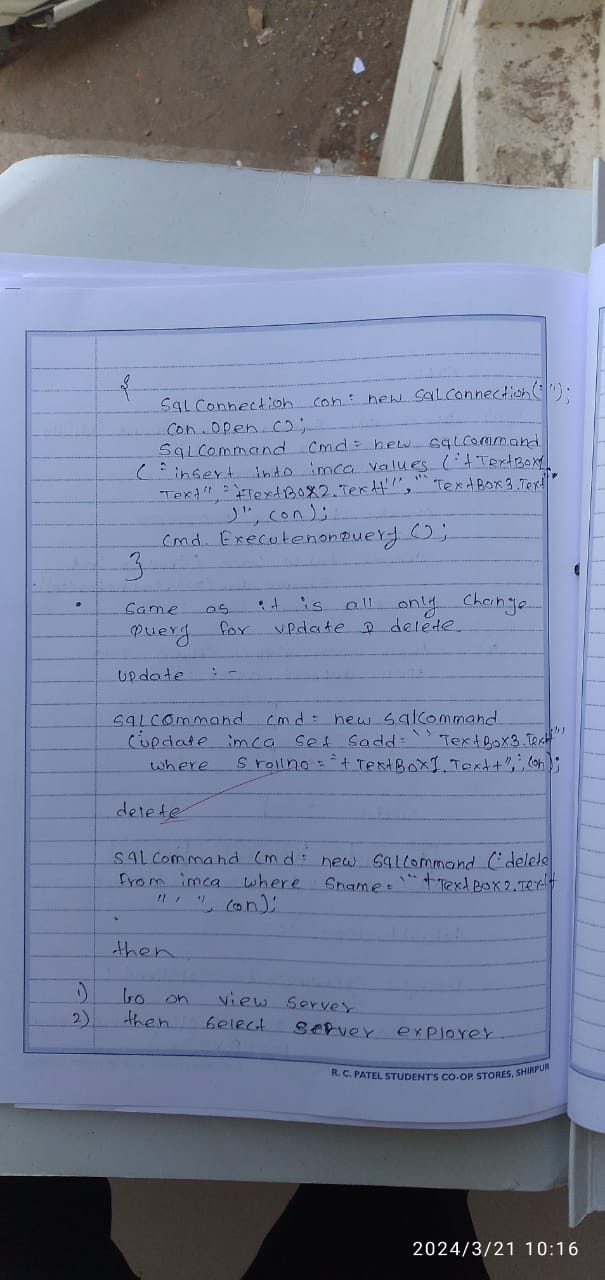 {
SqlConnection con = new SqlConnection(" ");
con.open ();
SqlCommand cmd = new sqlcommand
("insert into imca values ('"+TextBox1.
Text","+TextBox2.Text+'","" TextBox3.Text"
)", con);
cmd. ExecutenonQuery ();
}
• Same as it is all only Change
Query for update & delete
update :-
sqlcommand cmd = new sqlcommand
("update imca set sadd= '" TextBox3.Text"'"
where Srollno = "+ TextBox1.Text+", con);
delete
sqlcommand cmd = new sqlcommand ("delete
from imca where Sname = '"+TextBox2.Text+
"'", con);
then
1) Go on view server
2) then select server explorer
R. C. PATEL STUDENT'S CO-OP. STORES, SHIRPUR
2024/3/21 10:16